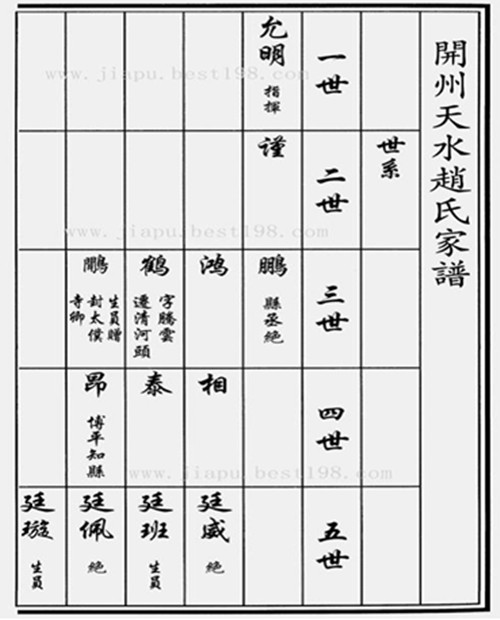 開州天水趙氏家譜
世系
一世
允明
指揮
二世
谨
三世
鵬
縣丞絕
鸿
鶴
字騰雲
遷清河頭
生員贈
封太僕
寺卿
四世
相
泰
昂
博平知縣
五世
廷威
絕
廷班
生員
廷佩
絕
廷璇
生員
www.jiapu.best198.com
www.jiapu.best198.com
www.jiapu.best198.com